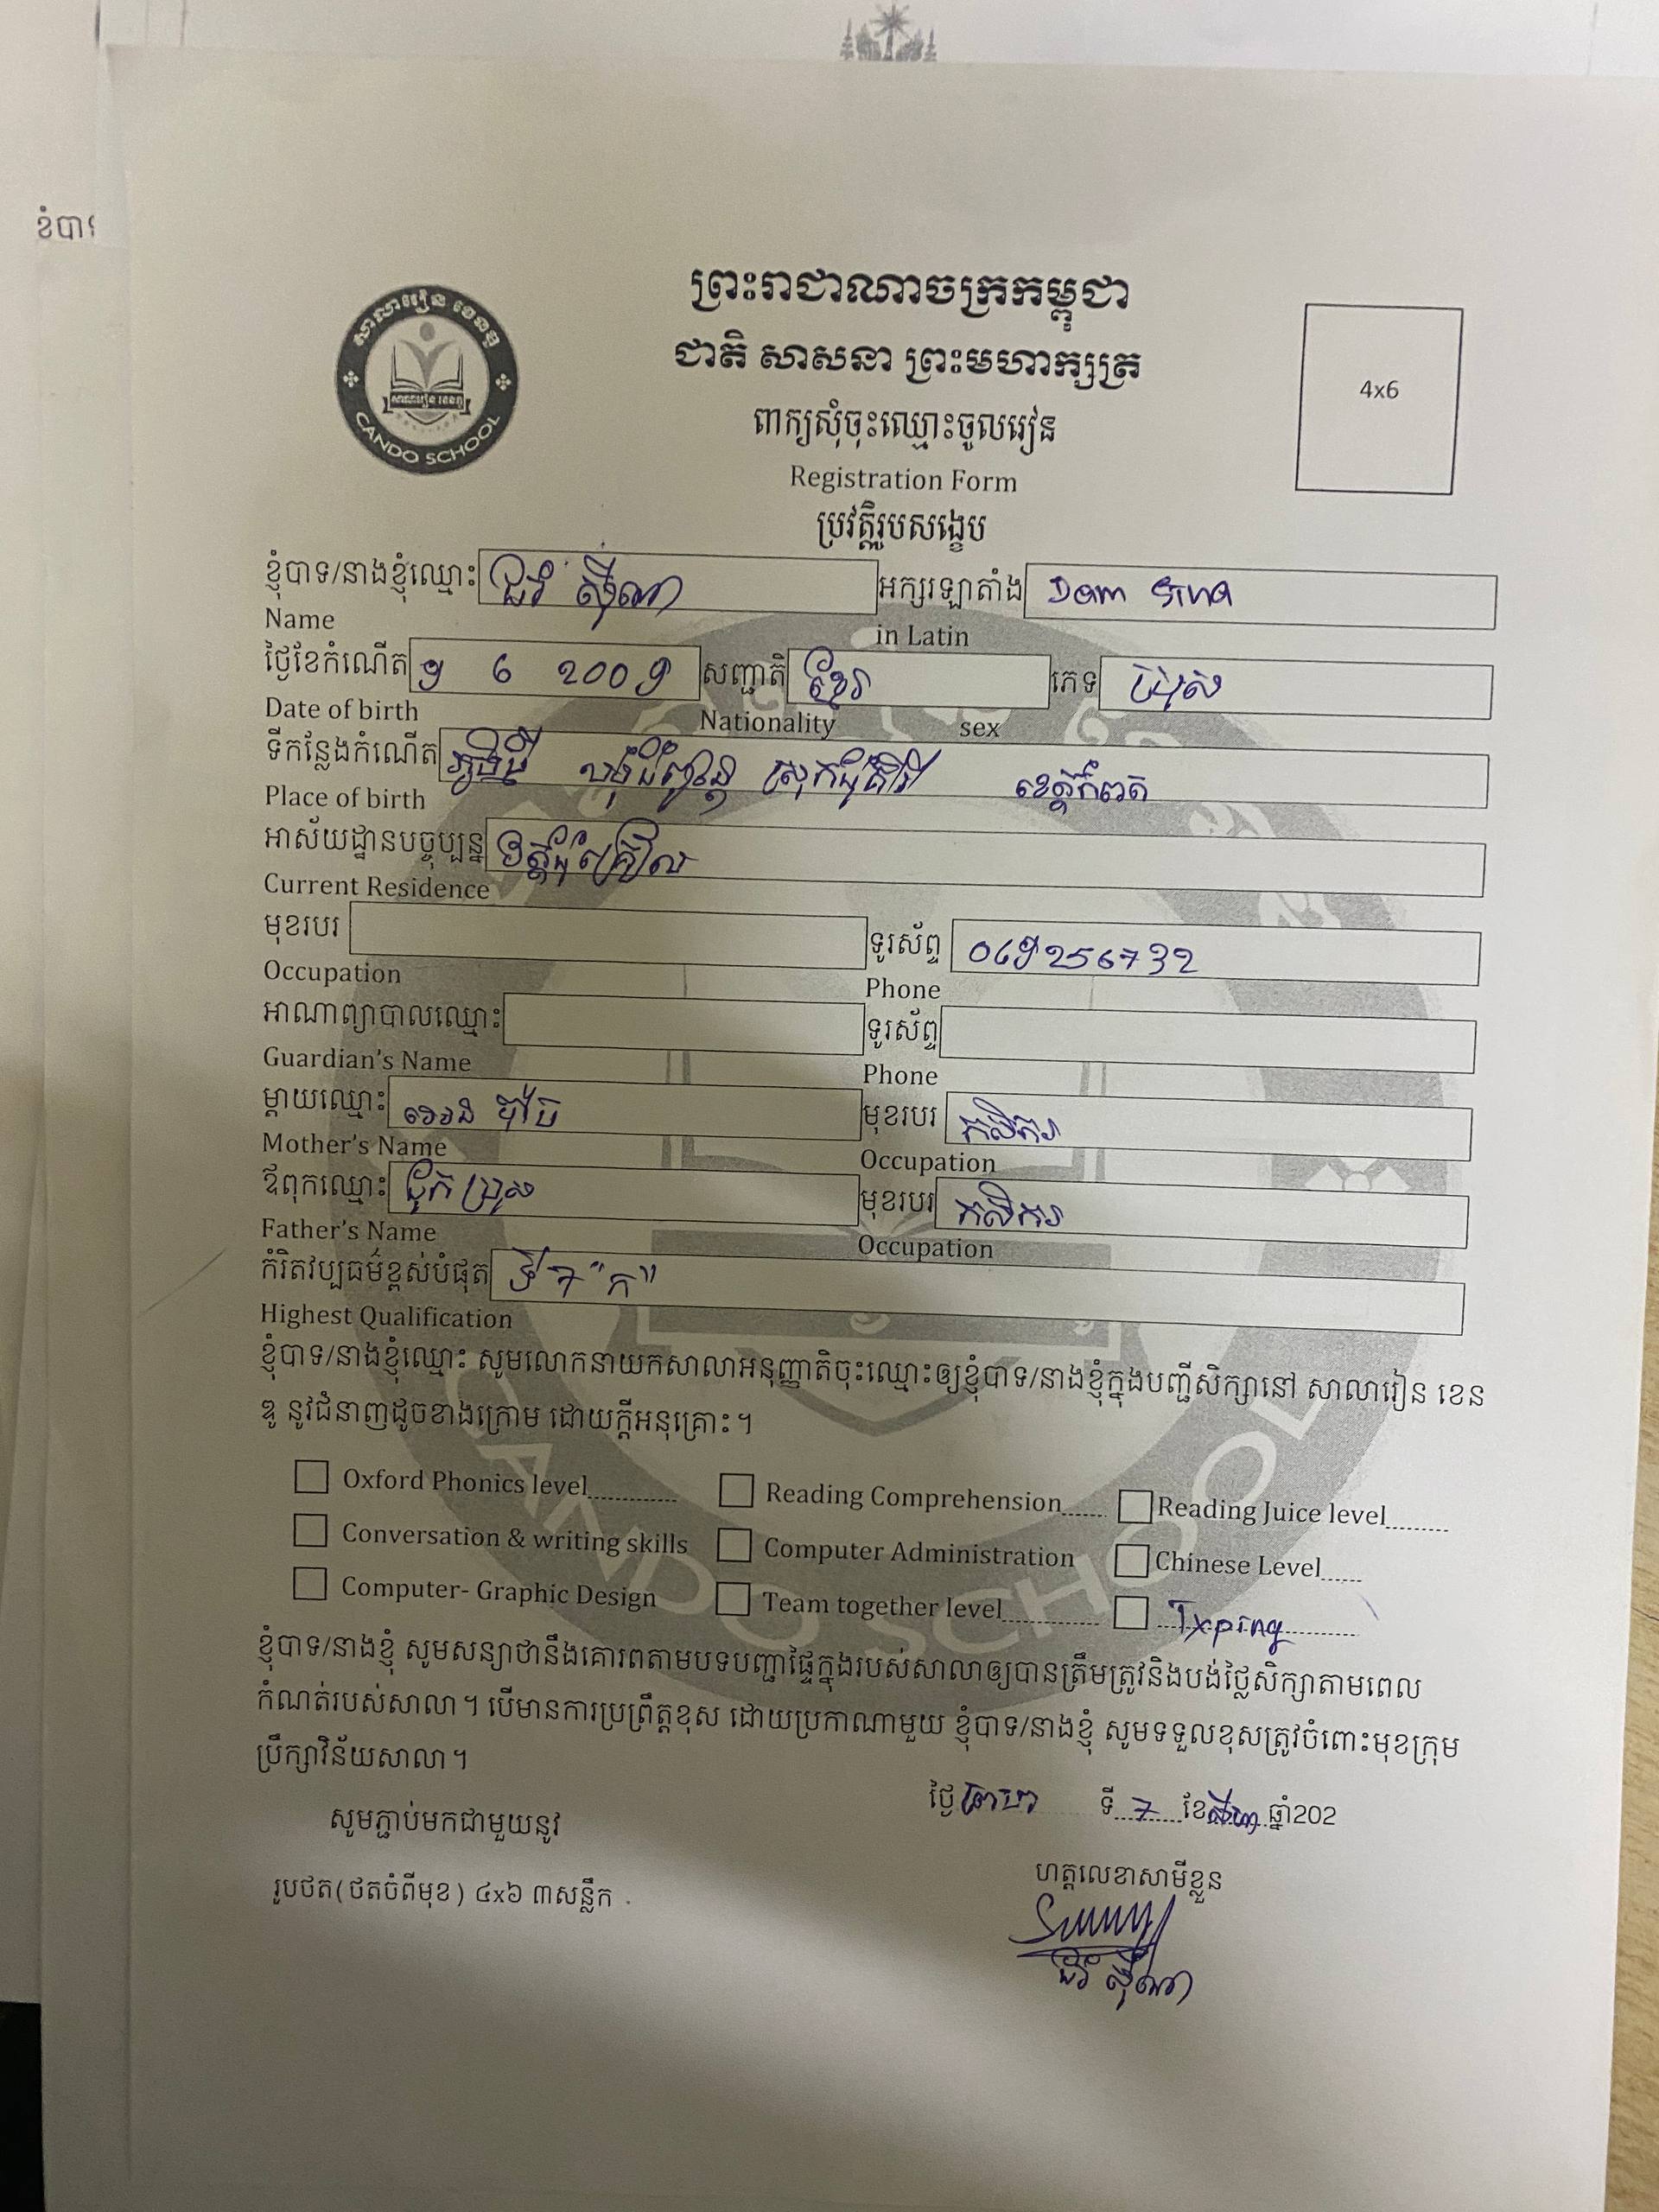 ខំបា
សាលារៀន ខេនឌូ
សាលារៀន ខេនឌូ
CANDO SCHOOL
ព្រះរាជាណាចក្រកម្ពុជា
ជាតិ សាសនា ព្រះមហាក្សត្រ
ពាក្យសុំចុះឈ្មោះចូលរៀន
Registration Form
ប្រវត្តិរូបសង្ខេប
4x6
ខ្ញុំបាទ/នាងខ្ញុំឈ្មោះ ស៊ីណា អក្សរឡាតាំង Dam Sina
Name in Latin
ថ្ងៃខែកំណើត 9 6 2009 សញ្ជាតិ ខ្មែរ ភេទ ប្រុស
Date of birth Nationality sex
ទីកន្លែងកំណើត ស្រុកជុំគិរី ខេត្តកំពត
Place of birth
អាស័យដ្ឋានបច្ចុប្បន្ន
Current Residence
មុខរបរ ទូរស័ព្ទ
Occupation Phone
អាណាព្យាបាលឈ្មោះ ទូរស័ព្ទ
Guardian's Name Phone
ម្ដាយឈ្មោះ មុខរបរ កសិករ
Mother's Name Occupation
ឪពុកឈ្មោះ មុខរបរ កសិករ
Father's Name Occupation
កំរិតវប្បធម៌ខ្ពស់បំផុត ទី 7 "ក"
Highest Qualification
ខ្ញុំបាទ/នាងខ្ញុំឈ្មោះ សូមលោកនាយកសាលាអនុញ្ញាតិចុះឈ្មោះឲ្យខ្ញុំបាទ/នាងខ្ញុំក្នុងបញ្ជីសិក្សានៅ សាលារៀន ខេន
ឌូ នូវជំនាញដូចខាងក្រោម ដោយក្ដីអនុគ្រោះ។
Oxford Phonics level Reading Comprehension Reading Juice level
Conversation & writing skills Computer Administration Chinese Level
Computer- Graphic Design Team together level Txping
ខ្ញុំបាទ/នាងខ្ញុំ សូមសន្យាថានឹងគោរពតាមបទបញ្ជាផ្ទៃក្នុងរបស់សាលាឲ្យបានត្រឹមត្រូវនិងបង់ថ្លៃសិក្សាតាមពេល
កំណត់របស់សាលា។ បើមានការប្រព្រឹត្តខុស ដោយប្រកាណាមួយ ខ្ញុំបាទ/នាងខ្ញុំ សូមទទួលខុសត្រូវចំពោះមុខក្រុម
ប្រឹក្សាវិន័យសាលា។
ថ្ងៃ ទី 7 ខែ សីហា ឆ្នាំ202
សូមភ្ជាប់មកជាមួយនូវ
ហត្ថលេខាសាមីខ្លួន
រូបថត(ថតចំពីមុខ) ៤x៦ ៣សន្លឹក
ស៊ីណា
CANDO SCHOOL